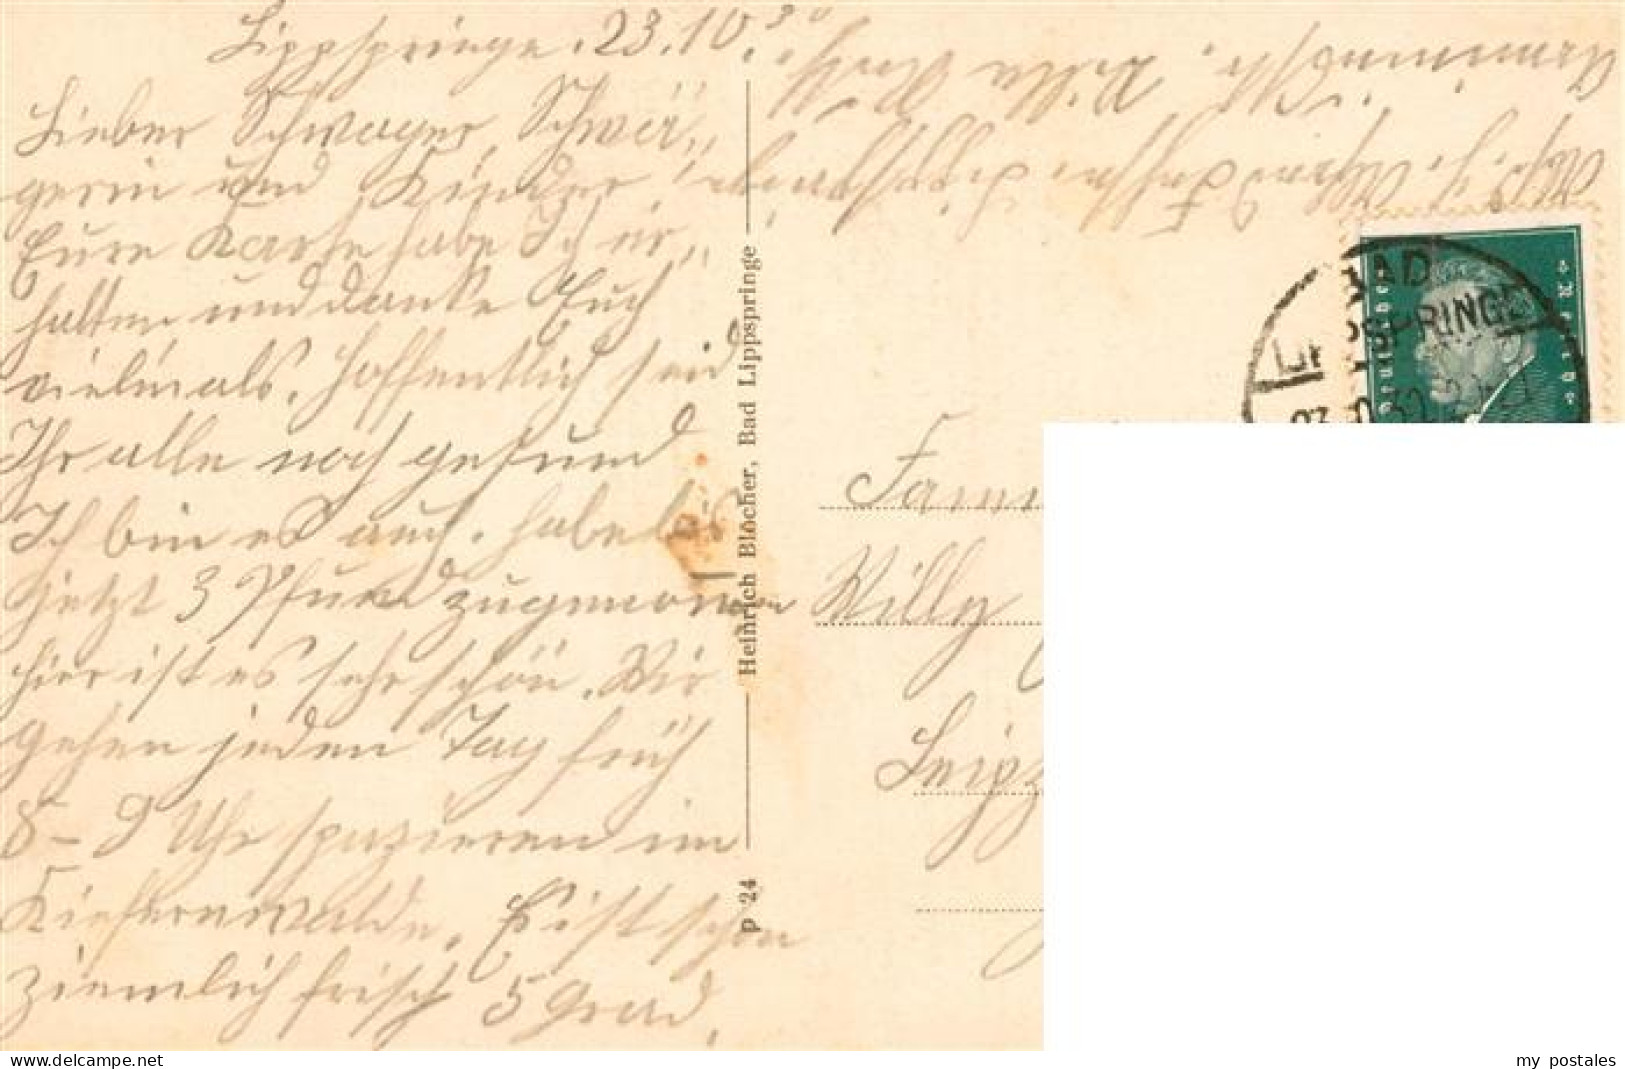 Lippspringe, 23.10.30
Lieber Schwager, Schwä„
gerin und Kinder!
Eure Karte habe Ich er„
halten und danke Euch
vielmals. Hoffentlich seid
Ihr alle noch gesund
Ich bin es auch. habe bis
jetzt 3 Pfund zugenommen
hier ist es sehr schön. Wir
gehen jeden Tag früh
8–9 Uhr spazieren im
Kiefernwalde. Es ist schon
ziemlich frisch 5 Grad.
Heinrich Blöcher, Bad Lippspringe
p 24
Lippspringe
Arminius Villa
BAD
LIPPSPRINGE
23.10.30
Deutsches
Fami
Willy
Leipz
my postales
www.delcampe.net